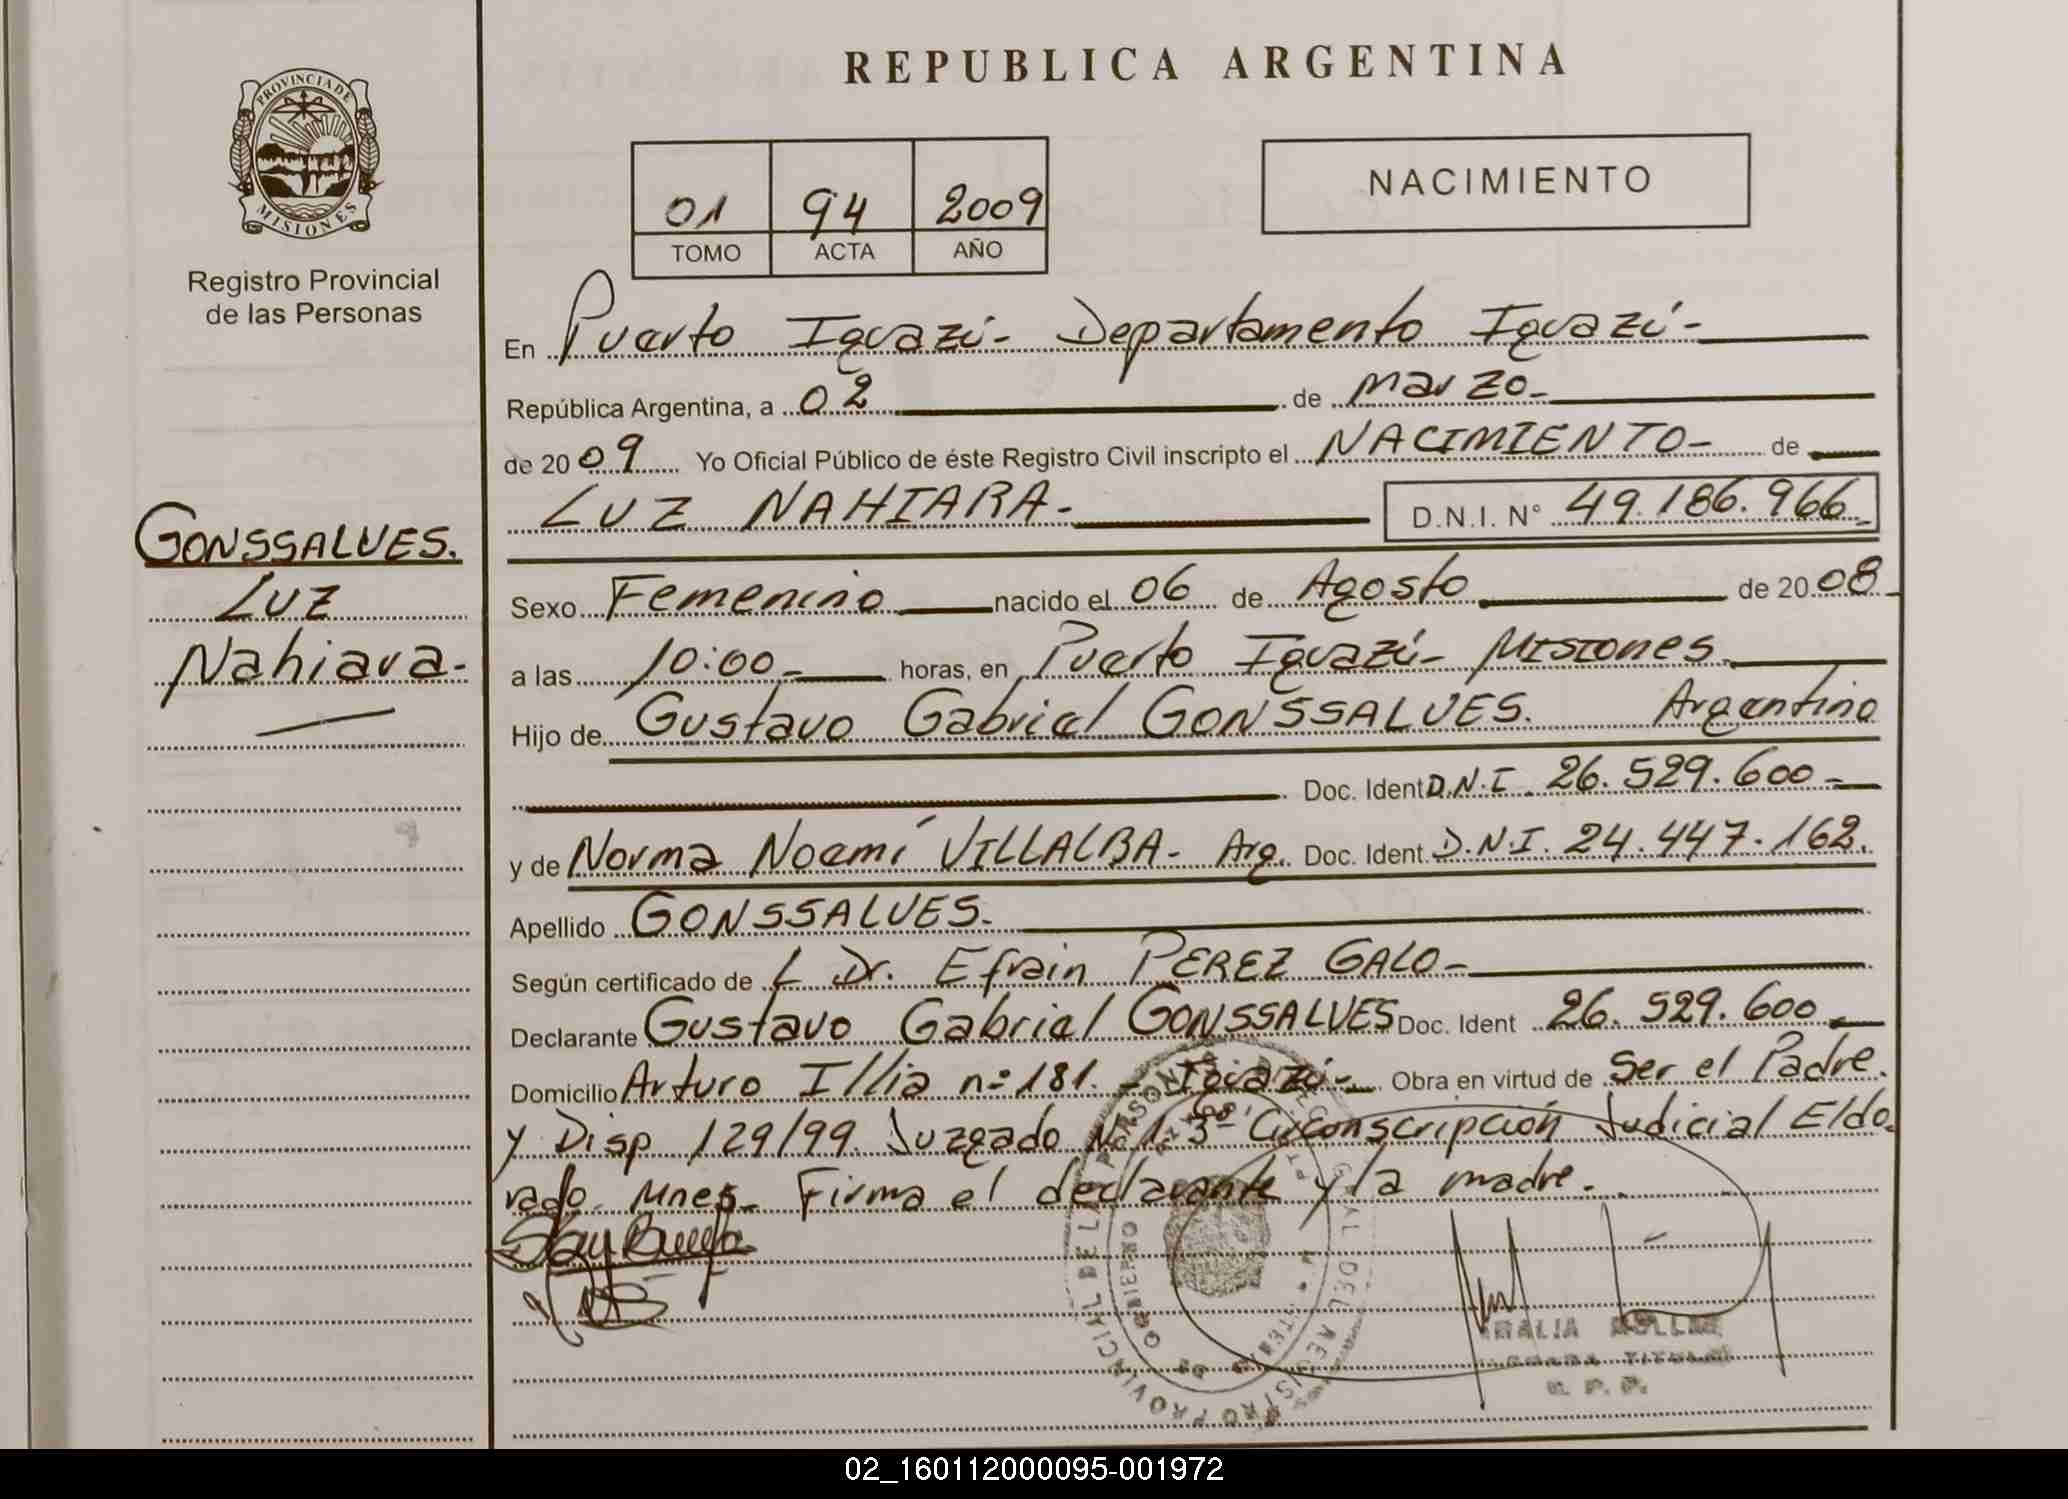 REPUBLICA ARGENTINA
PROVINCIA DE
MISIONES
Registro Provincial
de las Personas
01 94 2009
TOMO ACTA AÑO
NACIMIENTO
En Puerto Iguazú - Departamento Iguazú -
República Argentina, a 02 de Marzo -
de 2009 Yo Oficial Público de éste Registro Civil inscripto el NACIMIENTO - de
LUZ NAHIARA - D.N.I. N° 49.186.966 -
GONSSALVES.
Luz
Nahiara -
Sexo Femenino nacido el 06 de Agosto de 2008
a las 10:00 - horas, en Puerto Iguazú - Misiones
Hijo de Gustavo Gabriel GONSSALVES. Argentino
Doc. Ident D.N.I. 26.529.600 -
y de Norma Noemí VILLALBA - Arg. Doc. Ident. D.N.I. 24.447.162.
Apellido GONSSALVES -
Según certificado de L Dr. Efrain PEREZ GALO -
Declarante Gustavo Gabriel GONSSALVES Doc. Ident 26.529.600 -
Domicilio Arturo Illia n° 181. - Iguazú - Obra en virtud de Ser el Padre.
y Disp 129/99. Juzgado N° 1. 3ª Circonscripción Judicial Eldo
rado. Mnes - Firma el declarante y la madre -
02_160112000095-001972